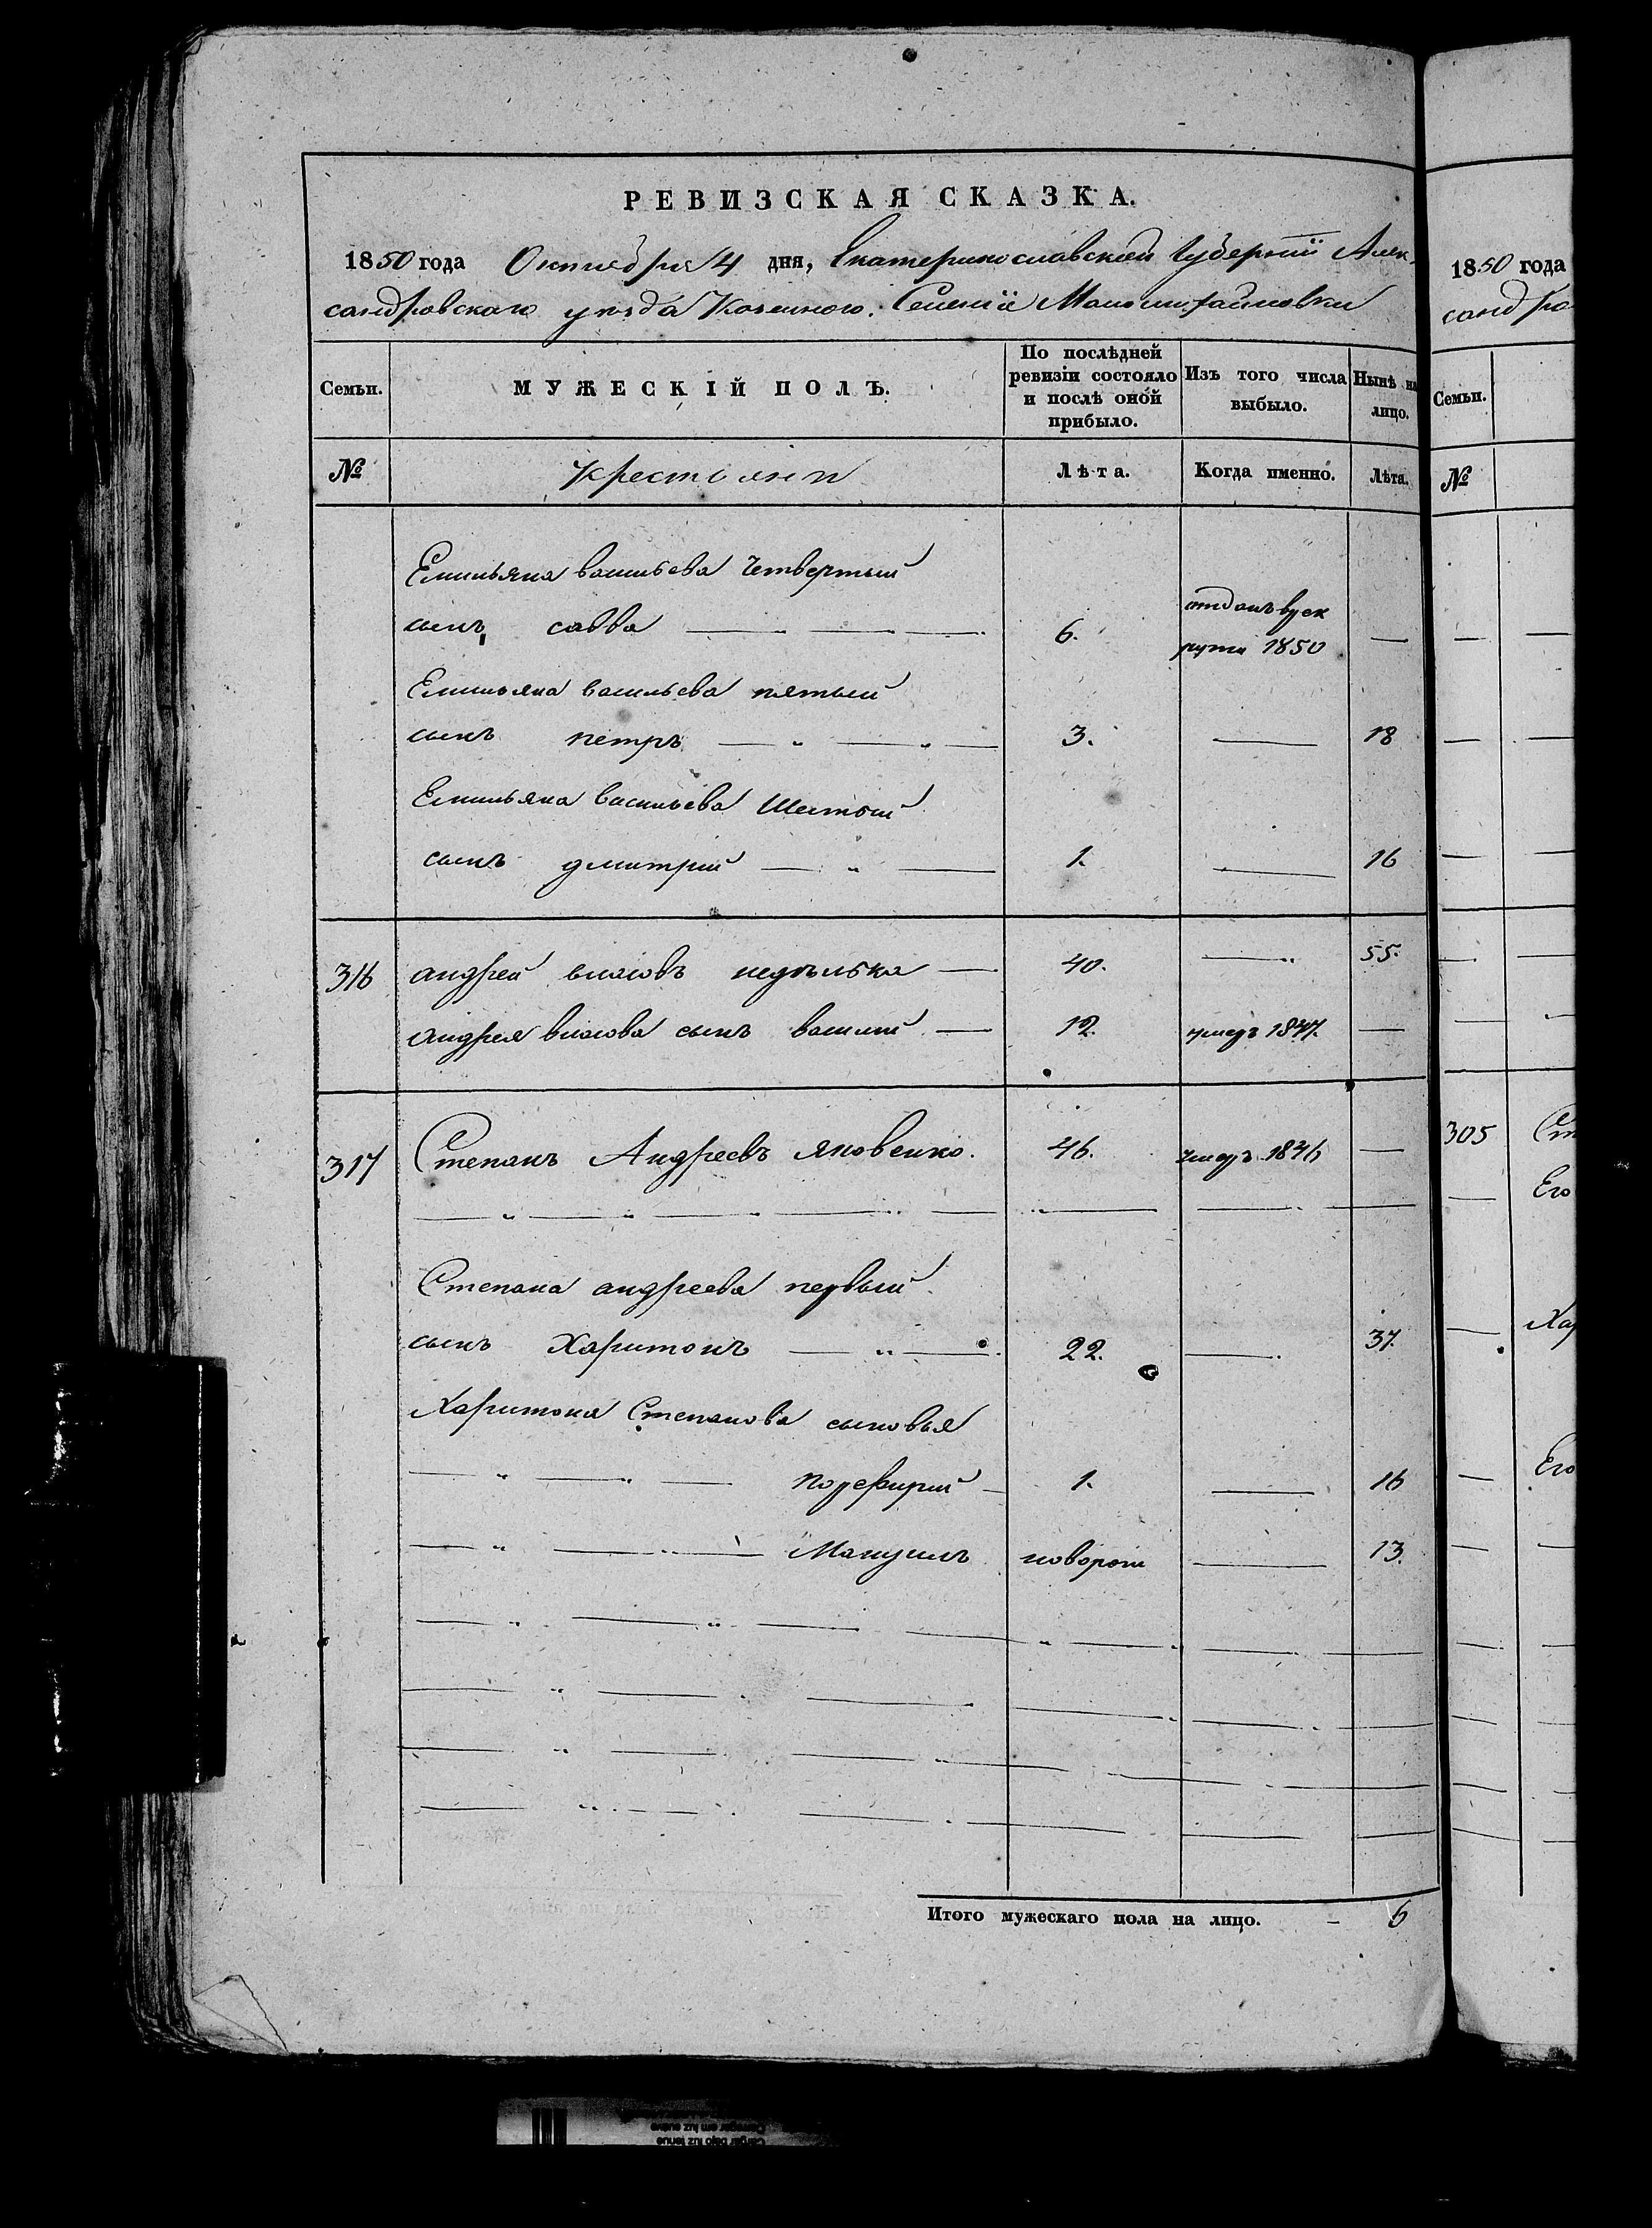 РЕВИЗСКАЯ СКАЗКА.
1850 года Октября 4 дня, Екатеринославской Губернiи Алек-
сандровскаго уезда Казенного Селенiя Маломихайловки
Семьи. МУЖЕСКІЙ ПОЛЪ. По послѣдней ревизіи состояло и послѣ оной прибыло. Изъ того числа выбыло. Нынѣ на лицо.
№ Крестьяни Лѣта. Когда именно. Лѣта.
Емильяна васильева Четвертый
сынъ савва 6. отданъ врек
рути 1850 —
Емильяна васильева пятый
сынъ петръ 3. — 18
Емильяна васильева Шестый
сынъ дмитрий 1. — 16
316 андрей власовъ недѣлька — 40. — 55.
андрея власова сынъ василий — 12. умеръ 1847. —
317 Степанъ Андреевъ яковенко. 46. умеръ 1846 —
Степана андреева первый
сынъ Харитонъ 22. — 37.
Харитона Степанова сыновья
порфирий 1. — 16
Мануилъ новорож — 13.
Итого мужескаго пола на лицо. – 6
1850 года
сандро
Семьи.
№
305 Ст
Его
Хар
Его